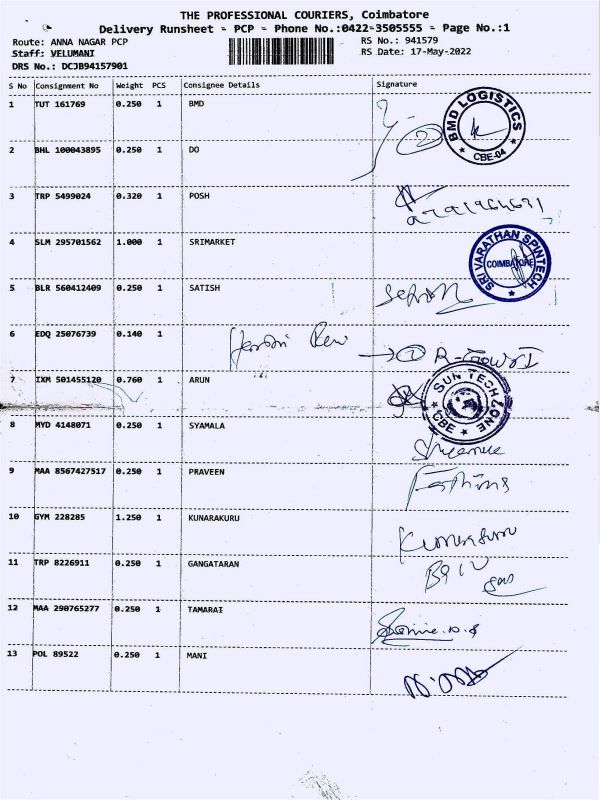 THE PROFESSIONAL COURIERS, Coimbatore
Delivery Runsheet - PCP - Phone No.:0422-3505555 - Page No.:1
Route: ANNA NAGAR PCP
RS No.: 941579
Staff: VELUMANI
RS Date: 17-May-2022
DRS No.: DCJB94157901
S No Consignment No Weight PCS Consignee Details Signature
1 TUT 161769 0.250 1 BMD
2
BMD LOGISTICS
CBE-04
2 BHL 100043895 0.250 1 DO
3 TRP 5499024 0.320 1 POSH
4 SLM 295701562 1.000 1 SRIMARKET
SRI VARATHAN SPINTECH
COIMBATORE
5 BLR 560412409 0.250 1 SATISH
6 EDQ 25076739 0.140 1
7 IXM 501455120 0.760 1 ARUN
SUN TECH ZONE
CBE
8 MYD 4148071 0.250 1 SYAMALA
9 MAA 8567427517 0.250 1 PRAVEEN
10 GYM 228285 1.250 1 KUNARAKURU
11 TRP 8226911 0.250 1 GANGATARAN
12 MAA 290765277 0.250 1 TAMARAI
13 POL 89522 0.250 1 MANI